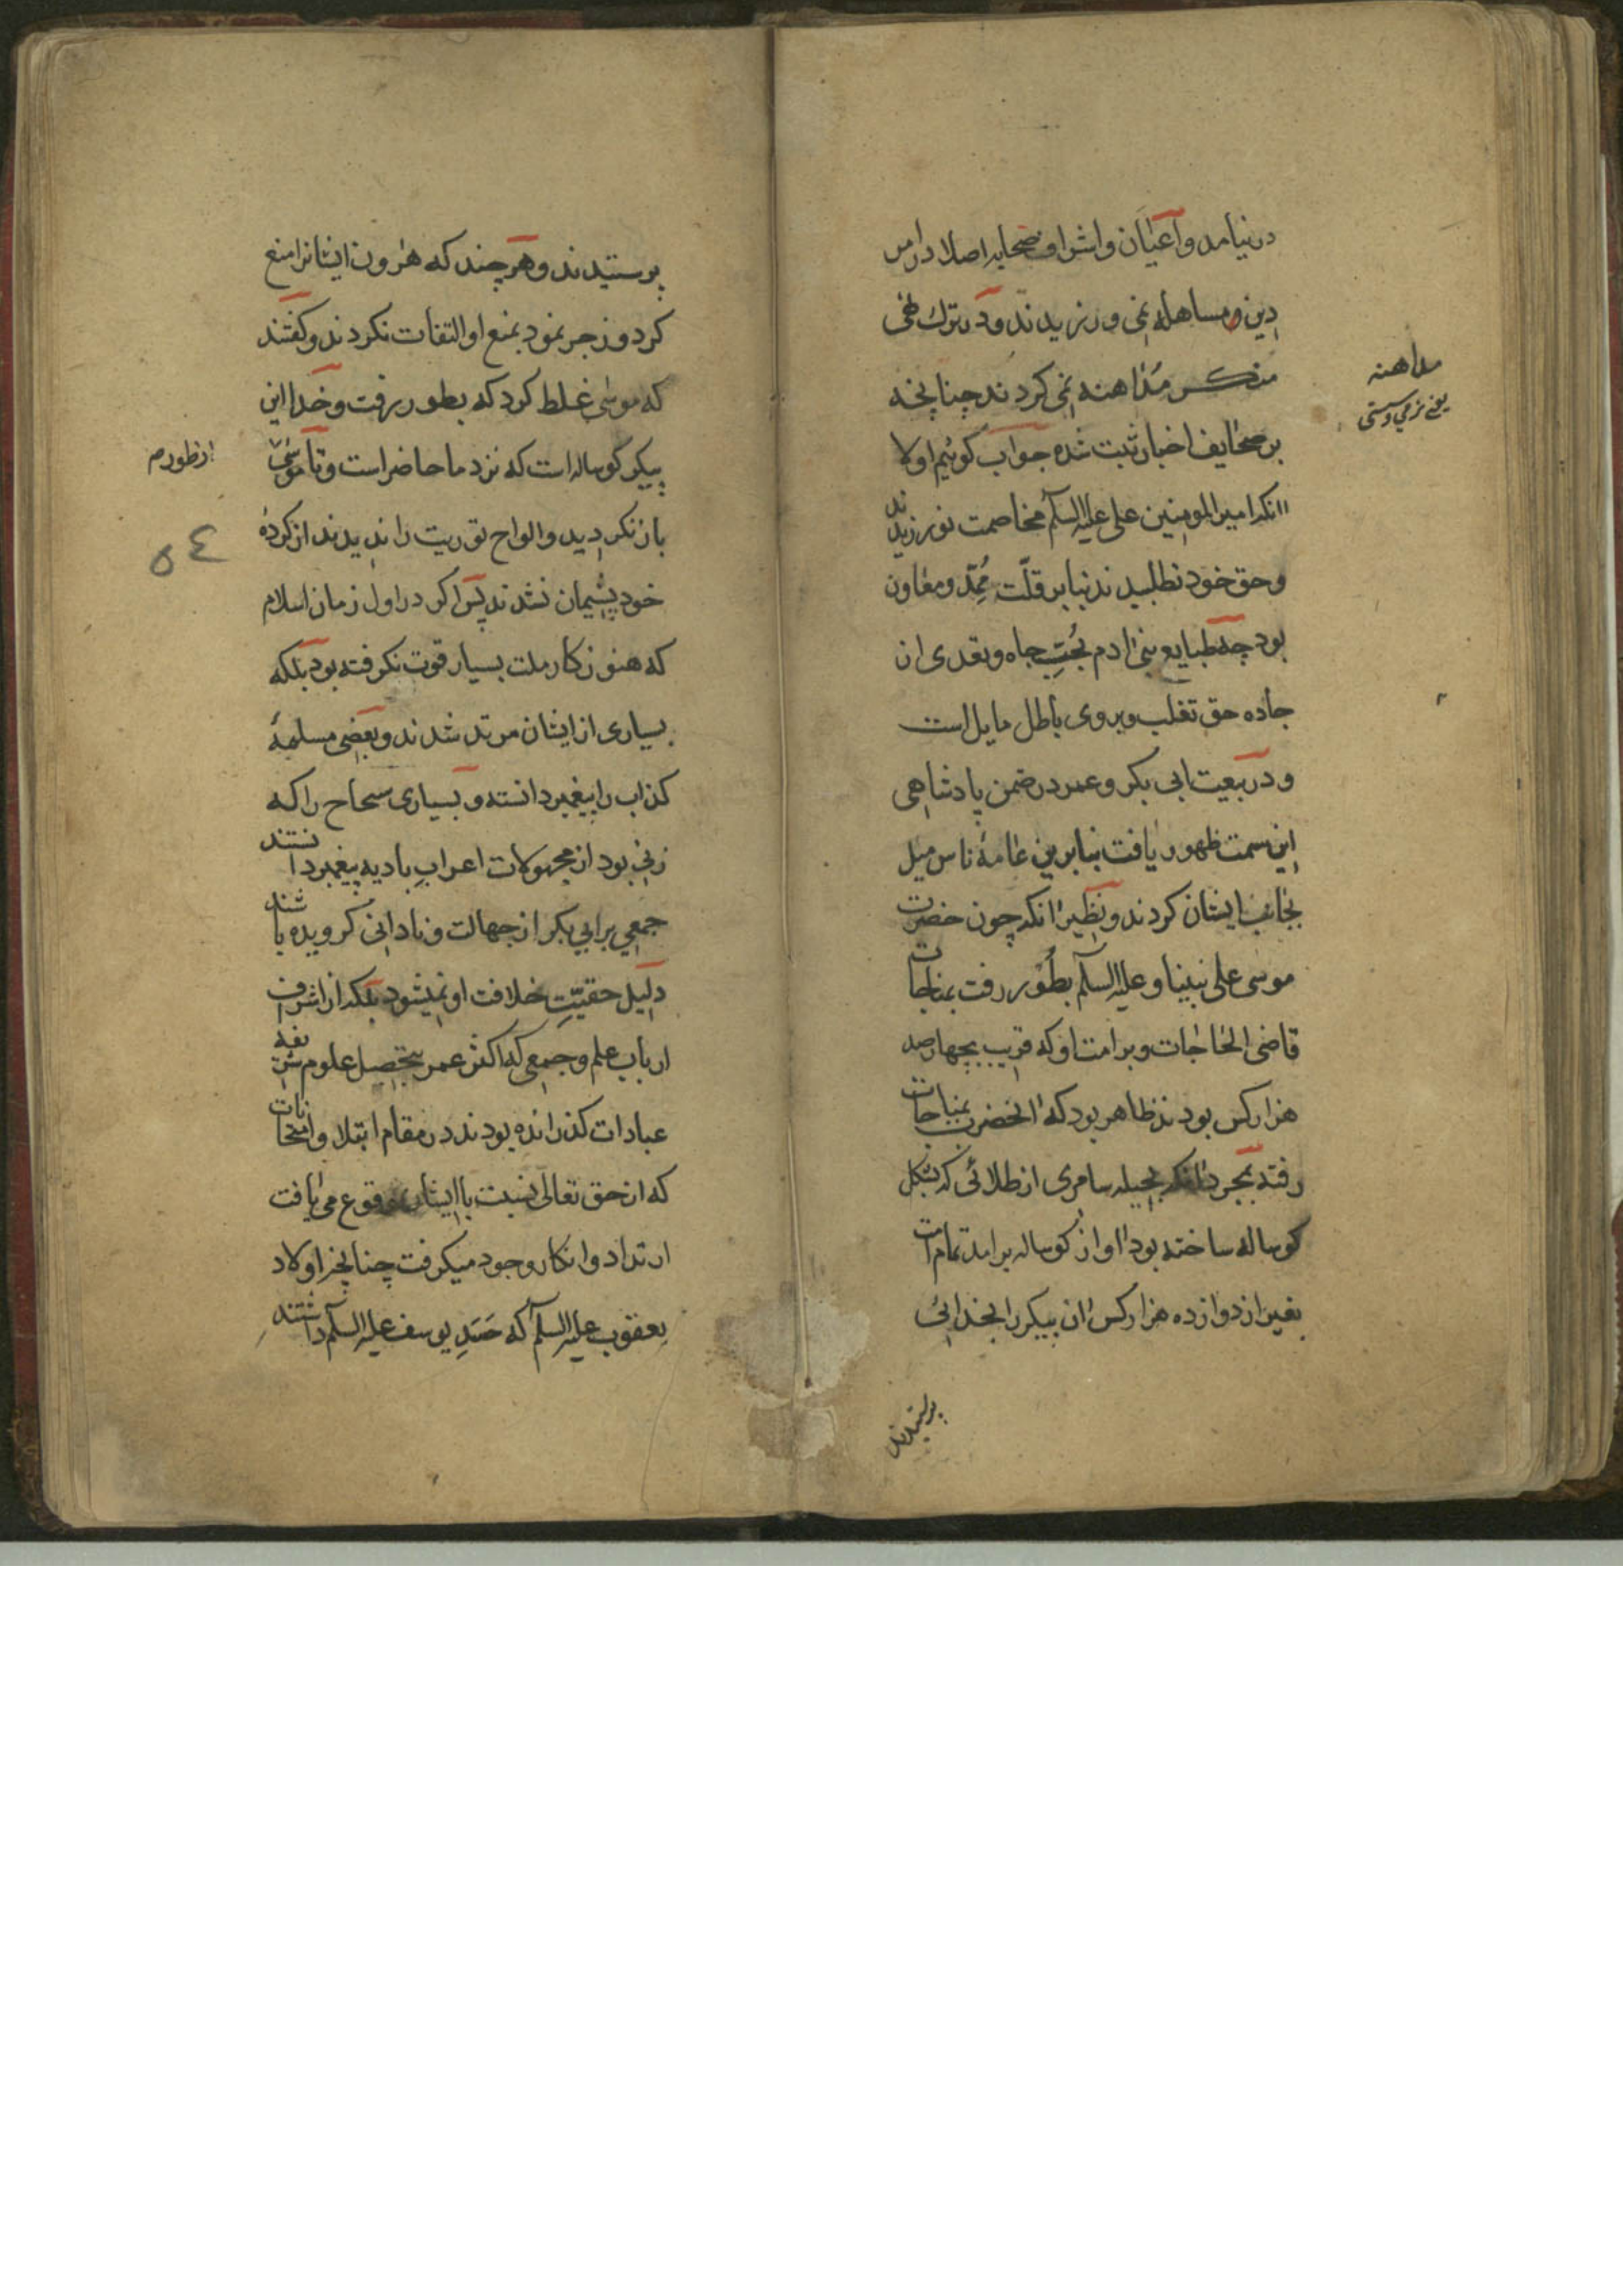 در نیامد و اعیان و اشراف صحابه اصلا در امر
دین مساهله نمی ورزیدند و در ترک نهی
منکر مداهنه نمی کردند چنانچه
بر صحایف اخبار ثبت شده جواب کوئیم اولا
انکه امیر المومنین علی علیه السلم مخاصمت نورزیدند
و حق خود نطلبیدند بنابر قلّت مُمِدّ و معاون
بود چه طبایع بنی ادم بحُبّ جاه و تعدی از
جاده حق تغلب و پیروی باطل مایل است
و در بیعت ابی بکر و عمر در ضمن پادشاهی
این سمت ظهور یافت بنابرین عامهٔ ناس میل
بجانب ایشان کردند و نظیر انکه چون حضرت
موسی علی نبینا و علیه السلم بطور رفت بمناجات
قاضی الحاجات و بر امت او که قریب بچهارصد
هزار کس بودند ظاهر بود که انحضرت بمناجات
رفته بمجرد انکه بحیله سامری از طلائی که بشکل
کوساله ساخته بود اواز کوساله برامد تمام امت
بغیر از دوازده هزار کس ان پیکر را بخدائی
پرستیدند
مداهنه
یعنی نرمی و سستی
پرستیدند و هر چند که هرون ایشانرا منع
کرد و زجر نمود بمنع او التفات نکردند و کفتند
که موسی غلط کرد که بطور رفت و خدا این
پیکر کوساله است که نزد ما حاضر است و تا موسی
باز نکردید و الواح توریت را ندیدند از کرده
خود پشیمان نشدند پس اکر در اول زمان اسلام
که هنوز کار ملت بسیار قوت نکرفته بود بلکه
بسیاری از ایشان مرتد شدند و بعضی مسلمهٔ
کذاب را پیغمبر دانسته و بسیاری سجاح را که
زنی بود از مجهولات اعراب بادیه پیغمبر دانستند
جمعی بر ابی بکر از جهالت و نادانی کرویده باشند
دلیل حقیّتِ خلافت او نمیشود بلکه از اشراف
ارباب علم و جمعی که اکثر عمر بتحصیل علوم شریفه
عبادات کذرانده بودند در مقام ابتلا و امتحانات
که از حق تعالی نسبت باایشان بوقوع می یافت
ارتداد و انکار وجود میکرفت چنانچه اولاد
یعقوب علیه السلم که حَسَدِ یوسف علیه السلم داشتند
از طور م
٥٤